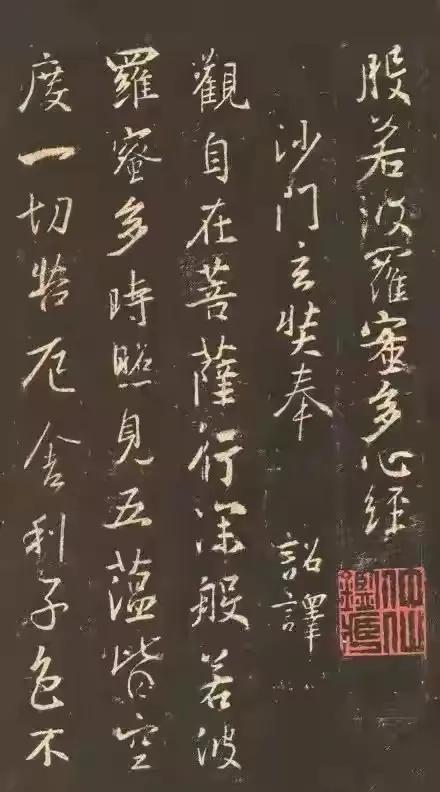 般若波羅蜜多心経
沙門玄奘奉 詔譯
觀自在菩薩行深般若波
羅蜜多時照見五蘊皆空
度一切苦厄舍利子色不